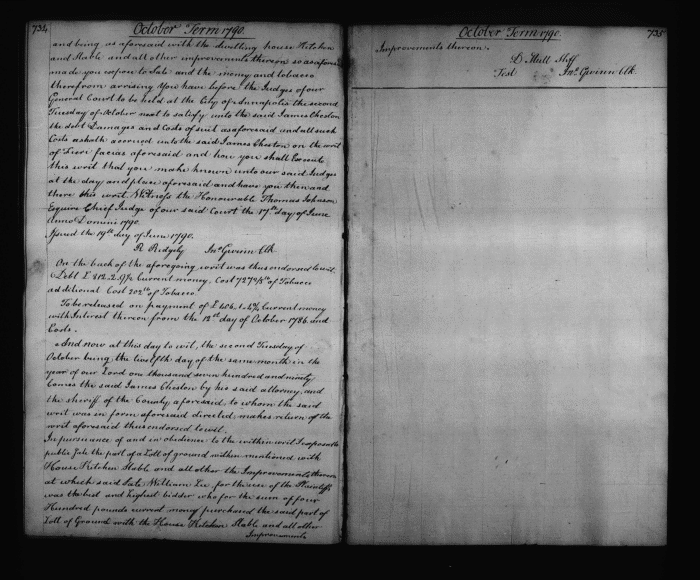 734 October Term 1790.
and being as aforesaid with the dwelling house Kitchen
and Stable and all other improvements thereon so as afores
made you expose to Sale and the money and tobacco
therefrom arrising You have before the Judges of our
General Court to be held at the City of Annapolis the second
Tuesday of October next to satisfy unto the said James Cheston
the debt Damages and Costs of suit aforesaid and all such
Costs as hath accrued unto the said James Cheston on the writ
of Fieri facias aforesaid and how you shall Execute
this writ that you make known unto our said Judges
at the day and place aforesaid and have you then and
there this writ. Witness the Honourable Thomas Johnson
Esquire Chief Judge of our said Court the 17th day of June
Anno Domini 1790.
Issued the 19th day of June 1790.
R Ridgely Jno Gwinn Clk
On the back of the aforegoing writ was thus endorsed to wit.
Debt £ 812.2. Current money. Cost of Tobacco
additional Cost 202 lb of Tobacco.
To be released on payment of £ 406.1. Current money
with Interest thereon from the 12th day of October 1786. and
Costs.
And now at this day to wit, the second Tuesday of
October being the twelfth day of the same month in the
year of our Lord one thousand seven hundred and ninety
Comes the said James Cheston by his said attorney, and
the sheriff of the County aforesaid, to whom the said
writ was in form aforesaid directed, makes return of the
writ aforesaid thus endorsed to wit.
In pursuance of and in obedience to the within writ I exposed to
public Sale the part of a Lott of ground within mentioned with
House Kitchen Stable and all other the Improvements thereon
at which said Sale William Lee for the use of the Plaintiffs
was the best and highest bidder who for the sum of four
Hundred pounds current money purchased the said part of
Lott of Ground with the House Kitchen Stable and all other
Improvements
October Term 1790. 735
Improvements thereon.
D Stull Shff
Test Jno Gwinn Clk.